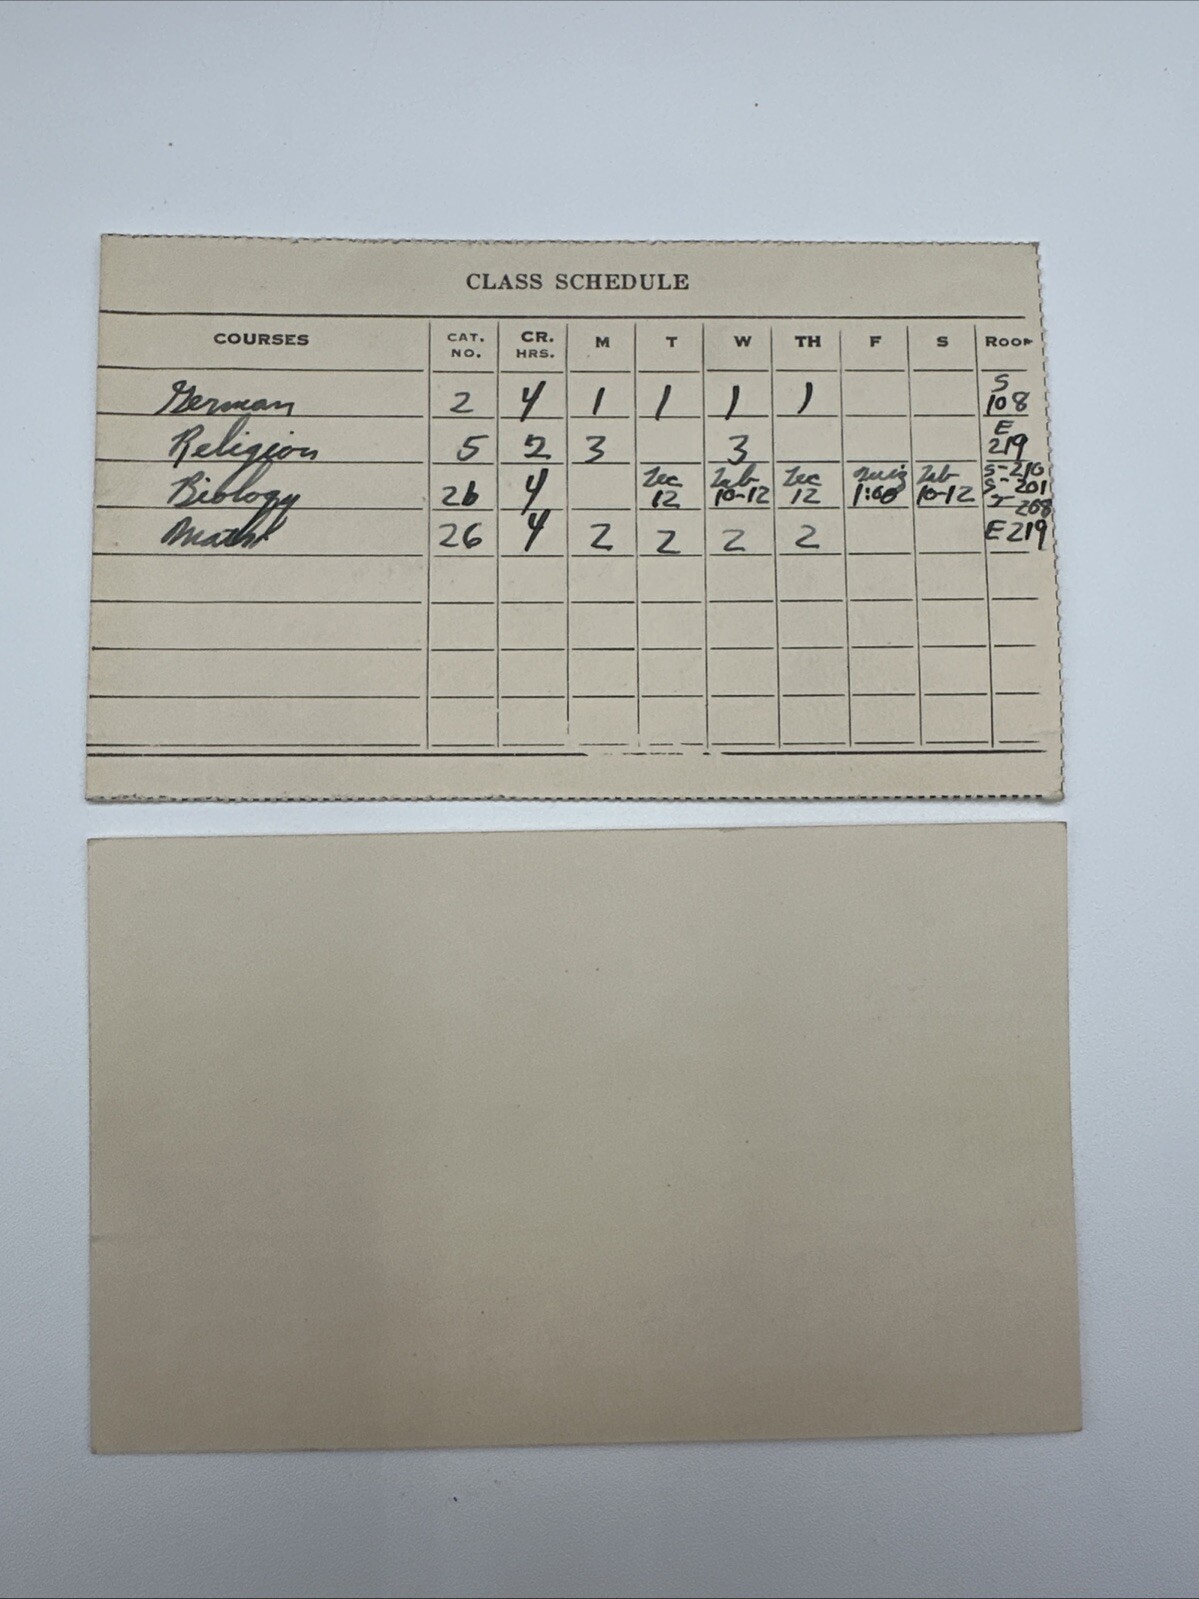 CLASS SCHEDULE
COURSES CAT. NO. CR. HRS. M T W TH F S ROOM
German 2 4 1 1 1 1 S 108
Religion 5 2 3 3 E 219
Biology 2b 4 Lec 12 Lab 10-12 Lec 12 Quiz 1:00 Lab 10-12 S-210 S-201 S-208
Math 26 4 2 2 2 2 E 219